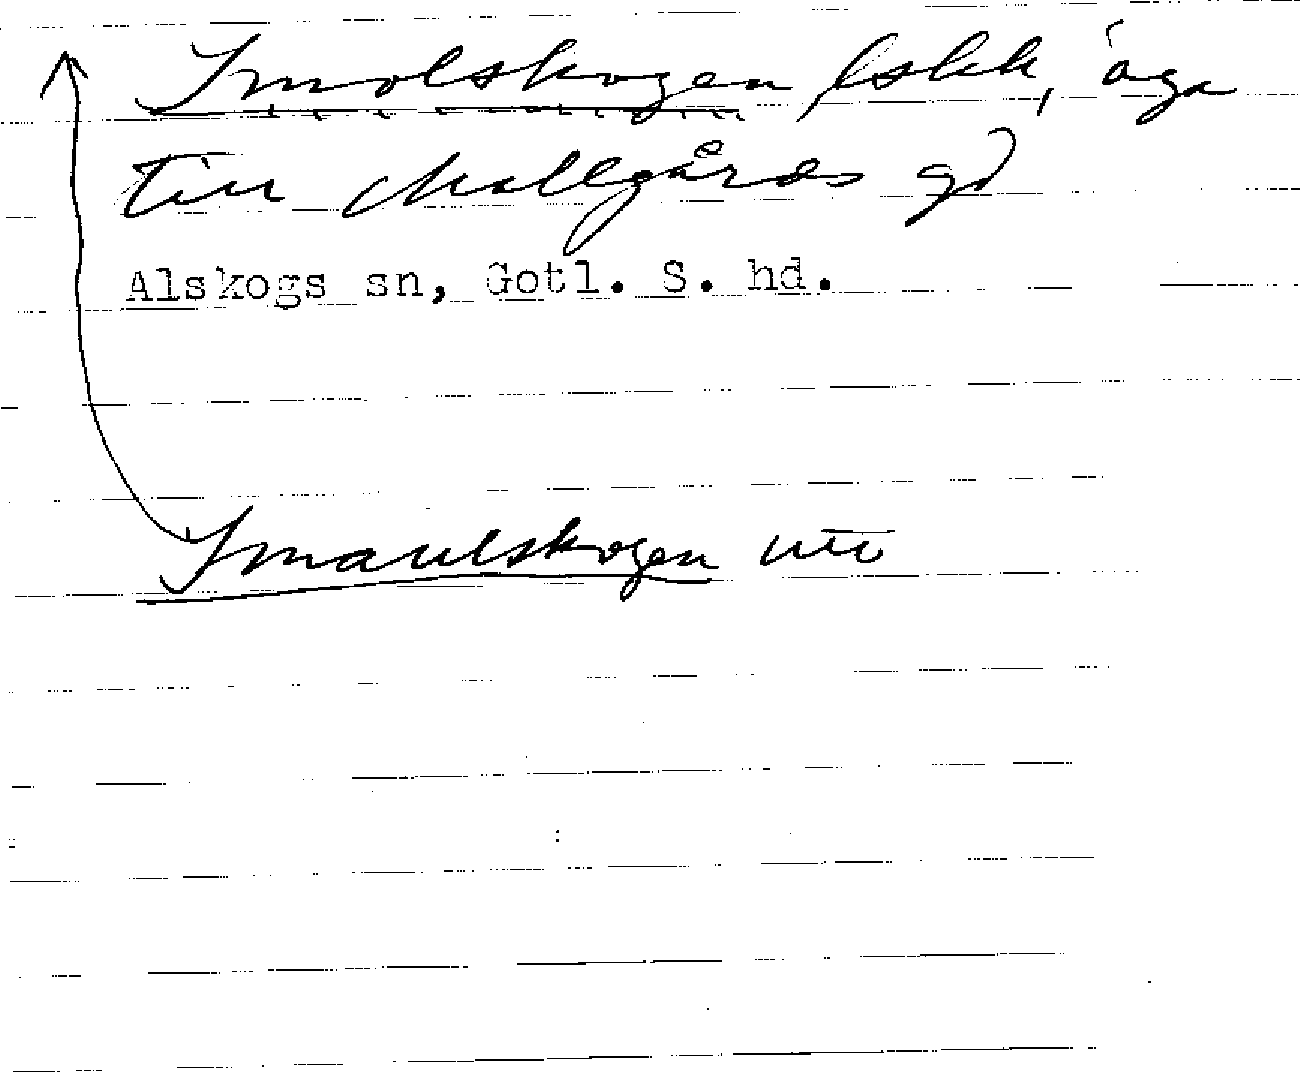 Smolskogen lskk, äga
till Hallgårds gd
Alskogs sn, Gotl. S. hd.
Smaulskogen utt